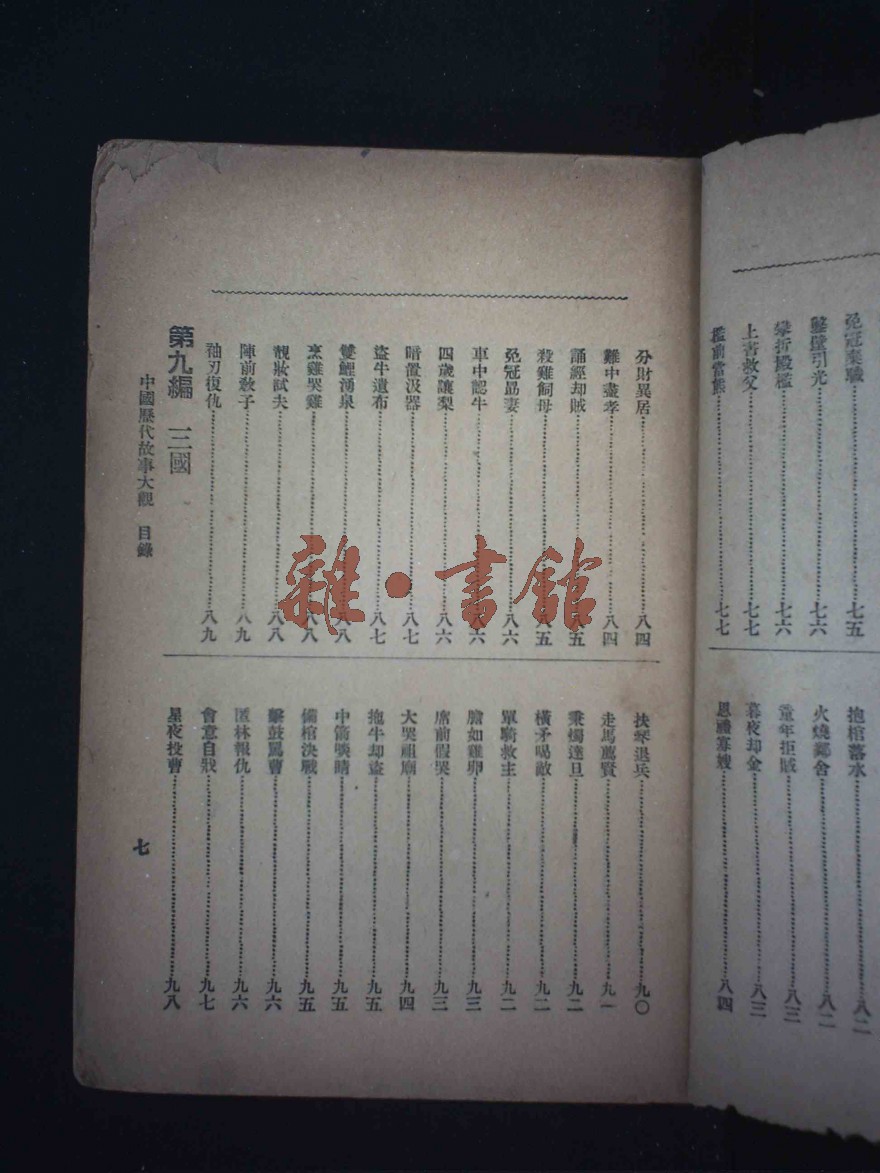 免冠棄職……七五
鑿壁引光……七六
攀折殿檻……七六
上書救父……七七
檻前當熊……七七
抱棺落水……八二
火燒鄰舍……八二
童年拒賊……八三
暮夜却金……八三
恩禮寡嫂……八四
分財異居……八四
難中盡孝……八四
誦經却賊……八五
殺雞飼母……八五
免冠勗妻……八六
車中認牛……八六
四歲讓梨……八六
暗置汲器……八七
盜牛遺布……八七
雙鯉湧泉……八八
烹雞哭雞……八八
靚妝試夫……八八
陣前教子……八九
袖刃復仇……八九
第九編 三國
扶琴退兵……九〇
走馬薦賢……九一
秉燭達旦……九二
橫矛喝敵……九二
單騎救主……九二
膽如雞卵……九三
席前假哭……九三
大哭祖廟……九四
抱牛却盜……九五
中箭啖睛……九五
備棺決戰……九五
擊鼓罵曹……九六
匿林報仇……九六
會意自戕……九七
星夜投曹……九八
中國歷代故事大觀 目錄
七
雜·書館